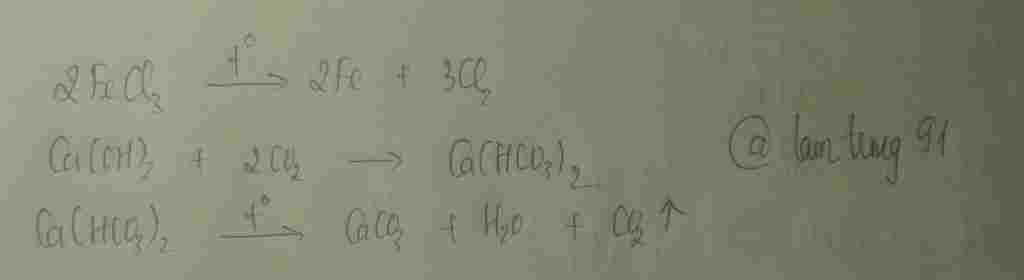 2FeCl₃ —t°→ 2Fe + 3Cl₂
Ca(OH)₂ + 2CO₂ → Ca(HCO₃)₂
@ lam tung 91
Ca(HCO₃)₂ —t°→ CaCO₃ + H₂O + CO₂↑